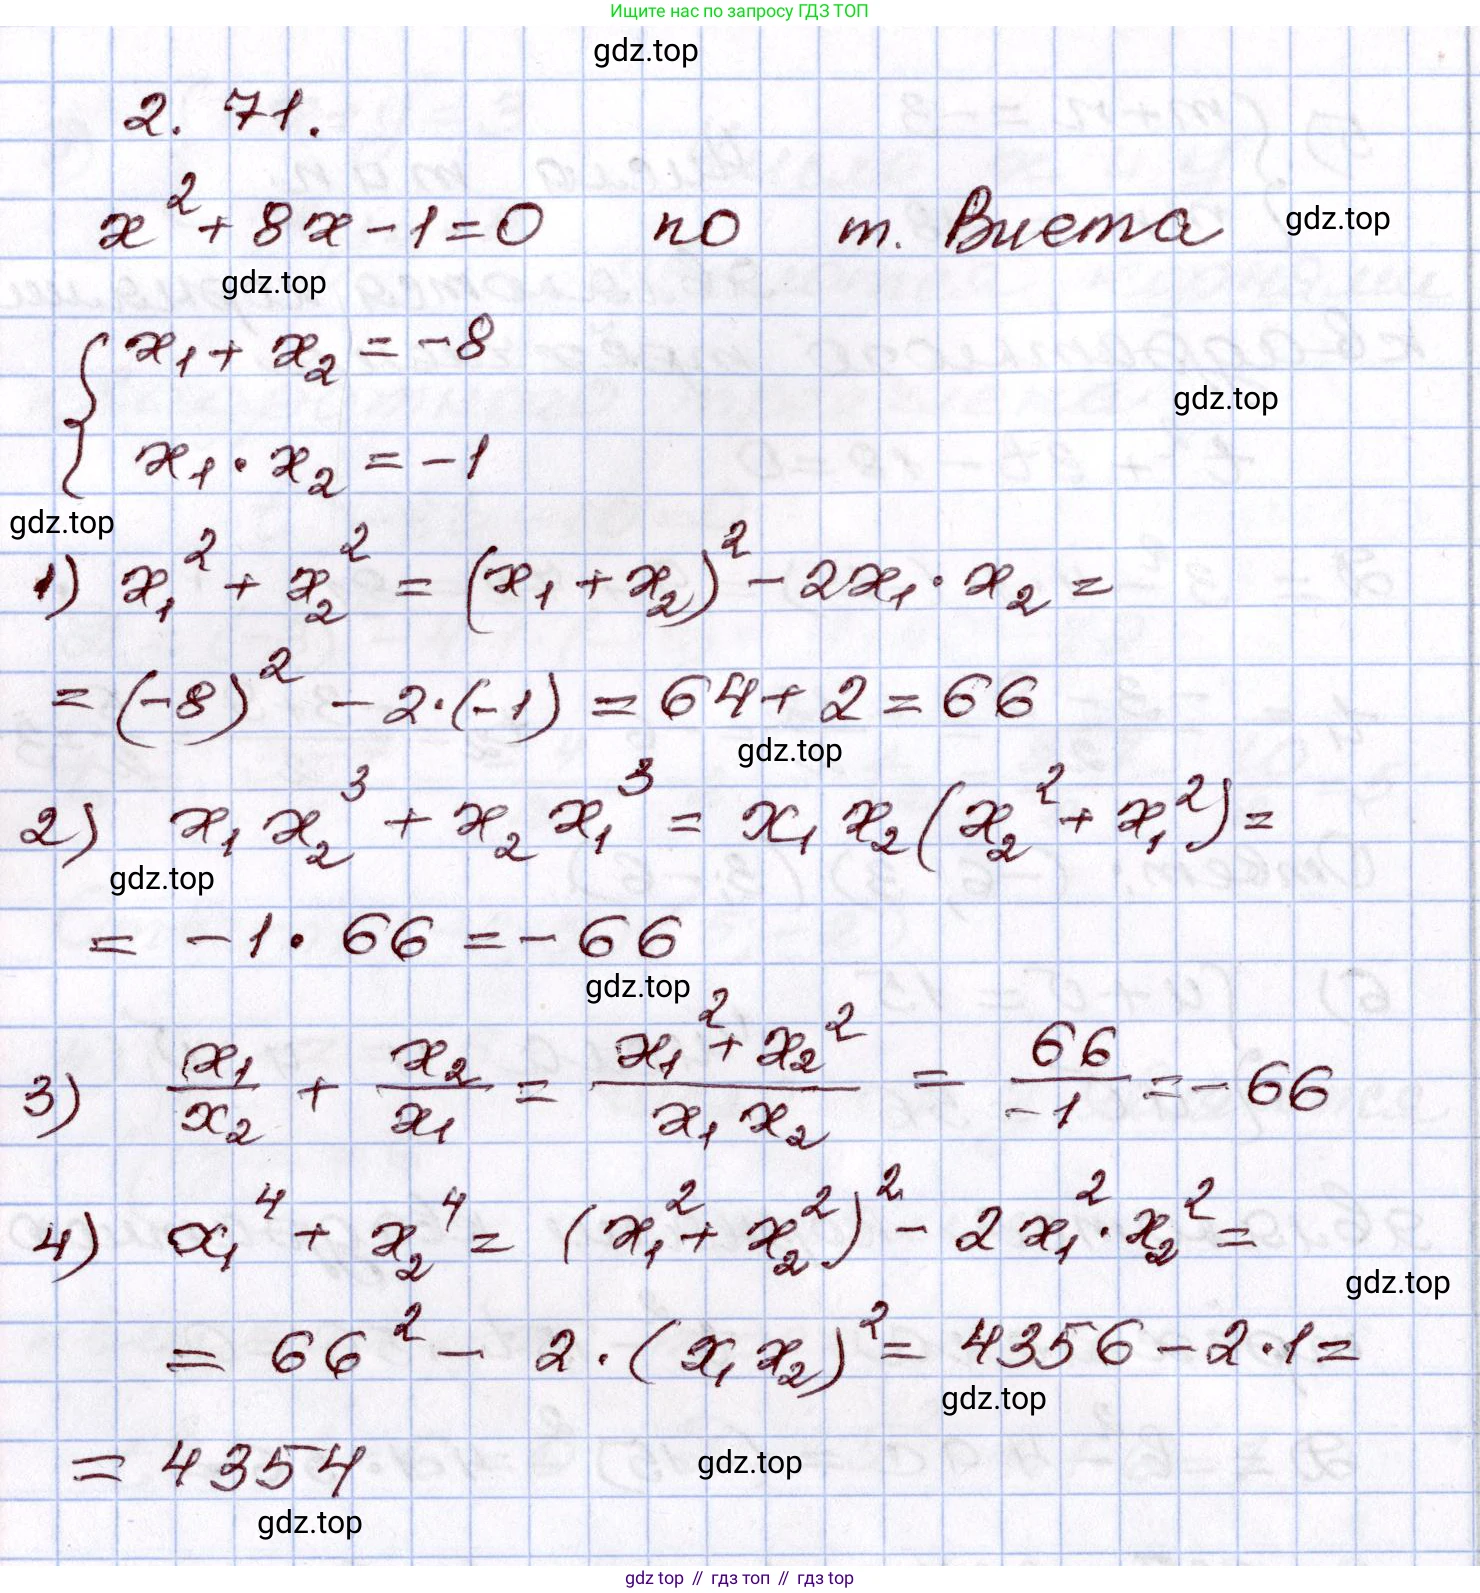 Ищите нас по запросу ГДЗ ТОП
gdz.top
2. 71.
x² + 8x − 1 = 0 по т. Виета gdz.top
gdz.top
{ x₁ + x₂ = −8
gdz.top
x₁ · x₂ = −1
gdz.top
1) x₁² + x₂² = (x₁ + x₂)² − 2x₁ · x₂ =
= (−8)² − 2·(−1) = 64 + 2 = 66
gdz.top
2) x₁ x₂³ + x₂ x₁³ = x₁ x₂ (x₂² + x₁²) =
gdz.top
= −1 · 66 = −66
gdz.top
3) x₁/x₂ + x₂/x₁ = (x₁² + x₂²)/(x₁ x₂) = 66/−1 = −66
4) x₁⁴ + x₂⁴ = (x₁² + x₂²)² − 2x₁² · x₂² =
gdz.top
= 66² − 2 · (x₁ x₂)² = 4356 − 2·1 =
gdz.top
= 4354
gdz.top
gdz.top
gdz top // гдз топ // гдз top